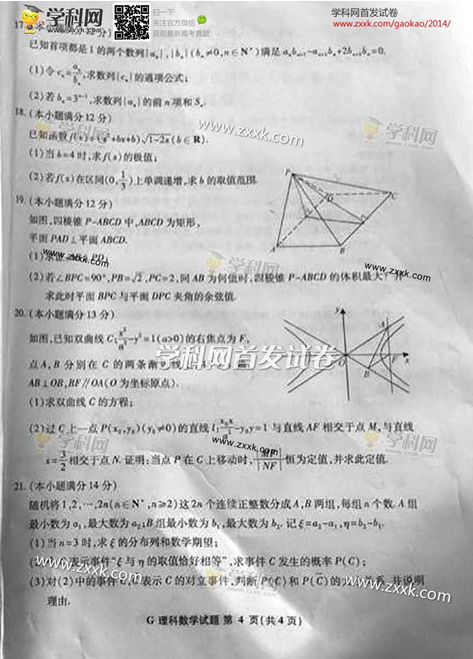 学科网
扫一扫
关注官方微信
获取最新高考真题
学科网首发试卷
www.zxxk.com/gaokao/2014/
17.
已知首项都是1的两个数列{aₙ},{bₙ}(bₙ≠0,n∈N*)满足aₙbₙ₊₁-aₙ₊₁bₙ+2bₙ₊₁bₙ=0.
(1)令cₙ=aₙ/bₙ,求数列{cₙ}的通项公式;
(2)若bₙ=3ⁿ⁻¹,求数列{aₙ}的前n项和Sₙ.
18.(本小题满分12分)
已知函数f(x)=(x²+bx+b)√1-2x(b∈R).
(1)当b=4时,求f(x)的极值;
(2)若f(x)在区间(0,1/3)上单调递增,求b的取值范围.
19.(本小题满分12分)
如图,四棱锥P-ABCD中,ABCD为矩形,
平面PAD⊥平面ABCD.
(1)求证:
(2)若∠BPC=90°,PB=√2,PC=2,问AB为何值时,四棱锥P-ABCD的体积最大?并
求此时平面BPC与平面DPC夹角的余弦值.
P
D
C
A
B
20.(本小题满分13分)
如图,已知双曲线C:x²/a²-y²=1(a>0)的右焦点为F,
点A,B分别在C的两条渐近线上,
AB⊥OB,BF∥OA(O为坐标原点).
(1)求双曲线C的方程;
(2)过C上一点P(x₀,y₀)(y₀≠0)的直线l:x₀x/a²-y₀y=1与直线AF相交于点M,与直线
x=3/2相交于点N.证明:当点P在C上移动时,|MF|/|NF|恒为定值,并求此定值.
y
A
O
F
x
B
21.(本小题满分14分)
随机将1,2,…,2n(n∈N*,n≥2)这2n个连续正整数分成A,B两组,每组n个数.A组
最小数为a₁,最大数为a₂;B组最小数为b₁,最大数为b₂.记ξ=a₂-a₁,η=b₂-b₁.
(1)当n=3时,求ξ的分布列和数学期望;
(2)令C表示事件“ξ与η的取值恰好相等”,求事件C发生的概率P(C);
(3)对(2)中的事件C,C̄表示C的对立事件,判断P(C)和P(C̄)的大小关系,并说明
理由.
G·理科数学试题 第4页(共4页)
学科网
www.zxxk.com
学科网
www.zxxk.com
学科网
www.zxxk.com
学科网首发试卷
www.zxxk.com
学科网
www.zxxk.com
学科网
www.zxxk.com